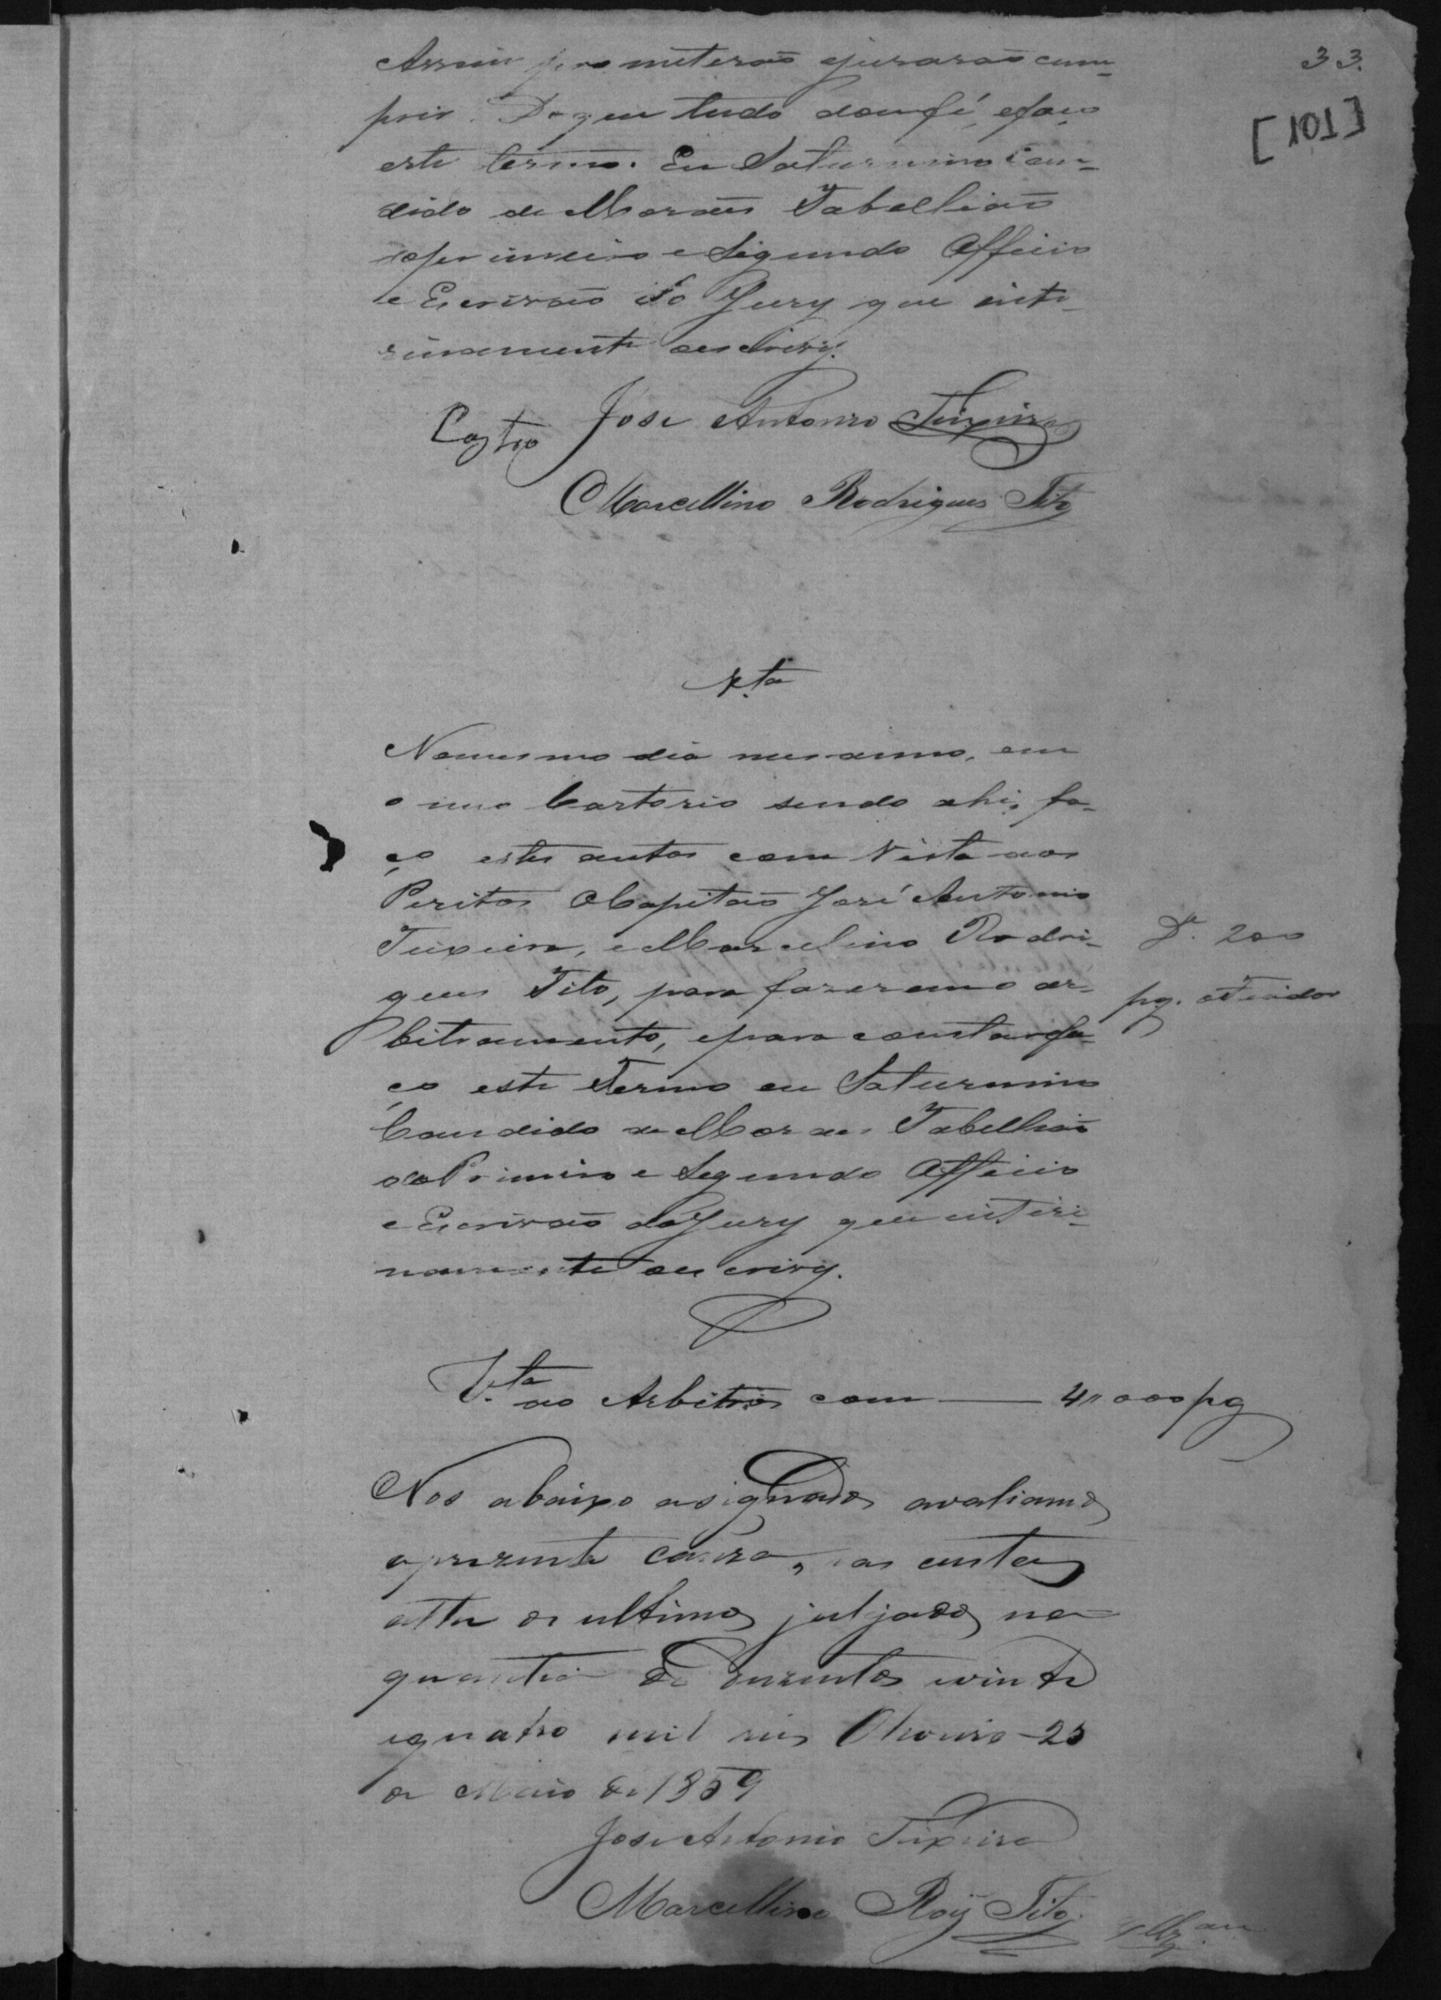 33.
[101]
Assim prometerão ejurarão cum-
prir. Doque tudo doufé, efaço
este termo. Eu Saturnino Can-
dido de Moraes Tabellião
doprimeiro e Segundo Officio
e Escrivão do Jury que inte-
rinamente escrivy.
Castro José Antonio Teixeira
Marcellino Rodrigues Tito
V.ta
Nomesmo dia mes anno, em
o meo Cartorio sendo ahi, fa-
ço estes autos com Vista aos
Peritos Capitão José Antonio
Teixeira, eMarcelino Rodri-
gues Tito, para fazerem o ar-
bitramento, epara constar fa-
ço este Termo eu Saturnino
Candido de Moraes Tabellião
doPrimeiro e Segundo Officio
e Escrivão doJury que interi-
namente escrivy.
D. 200
pg.
V.ta ao Arbitros com — 4$000 pg
Nos abaixo asignados avaliamos
aprezente cauza, nas custas
athe os ultimos julgados na
quantia de duzentos evinte
equatro mil reis 25
de Maio de 1859
José Antonio Teixeira
Marcellino Roiz Tito